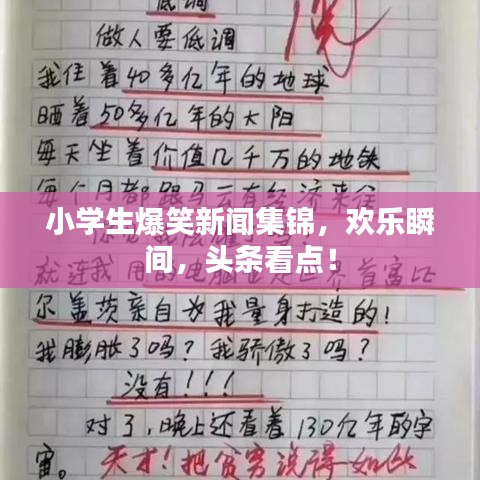 低调
做人要低调
我住着40多亿年的地球
晒着50多亿年的大阳
每天坐着价值几千万的地铁
每个月都跟马云有经济来往
小学生爆笑新闻集锦，欢乐瞬
间，头条看点！
就连我用的电脑世界首富比
尔盖茨亲自为我量身打造的！
我膨胀了吗？我骄傲了吗？
没有！！！
对了，晚上还看着130亿年的宇
宙。天才！把贫穷说得如此